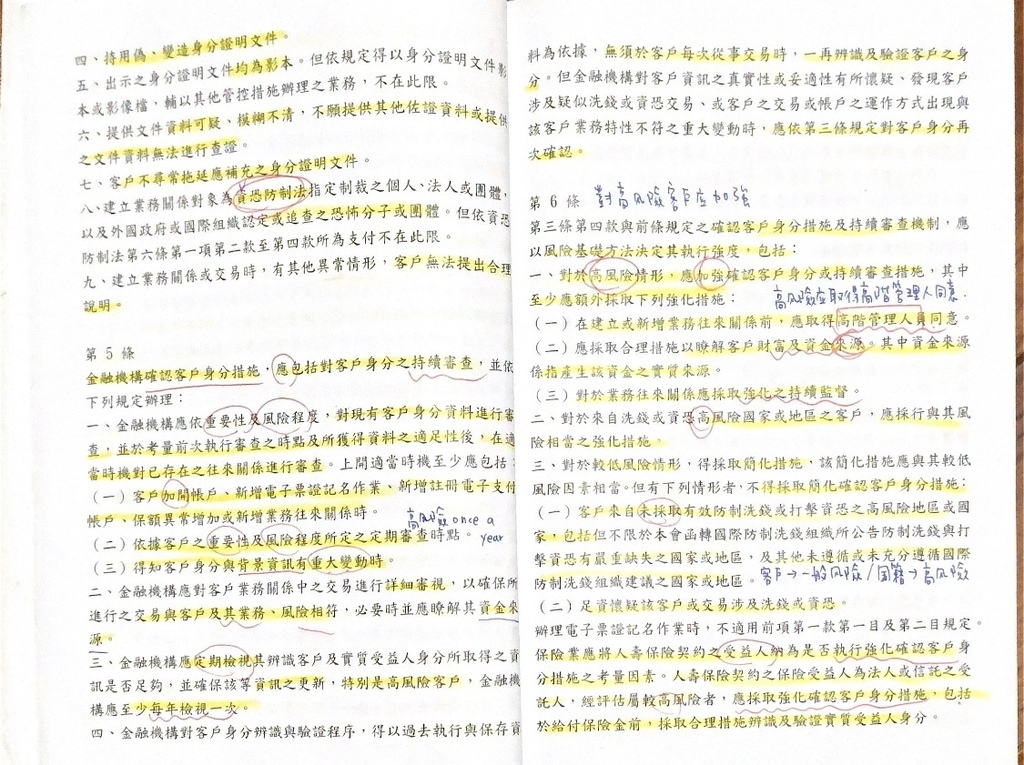 四、持用偽、變造身分證明文件。
五、出示之身分證明文件均為影本。但依規定得以身分證明文件影
本或影像檔，輔以其他管控措施辦理之業務，不在此限。
六、提供文件資料可疑、模糊不清，不願提供其他佐證資料或提供
之文件資料無法進行查證。
七、客戶不尋常拖延應補充之身分證明文件。
八、建立業務關係對象為資恐防制法指定制裁之個人、法人或團體，
以及外國政府或國際組織認定或追查之恐怖分子或團體。但依資恐
防制法第六條第一項第二款至第四款所為支付不在此限。
九、建立業務關係或交易時，有其他異常情形，客戶無法提出合理
說明。
第 5 條
金融機構確認客戶身分措施，應包括對客戶身分之持續審查，並依
下列規定辦理：
一、金融機構應依重要性及風險程度，對現有客戶身分資料進行審
查，並於考量前次執行審查之時點及所獲得資料之適足性後，在適
當時機對已存在之往來關係進行審查。上開適當時機至少應包括：
（一）客戶加開帳戶、新增電子票證記名作業、新增註冊電子支付
帳戶、保額異常增加或新增業務往來關係時。
高風險 once a
year
（二）依據客戶之重要性及風險程度所定之定期審查時點。
（三）得知客戶身分與背景資訊有重大變動時。
二、金融機構應對客戶業務關係中之交易進行詳細審視，以確保所
進行之交易與客戶及其業務、風險相符，必要時並應瞭解其資金來
源。
三、金融機構應定期檢視其辨識客戶及實質受益人身分所取得之資
訊是否足夠，並確保該等資訊之更新，特別是高風險客戶，金融機
構應至少每年檢視一次。
四、金融機構對客戶身分辨識與驗證程序，得以過去執行與保存資
料為依據，無須於客戶每次從事交易時，一再辨識及驗證客戶之身
分。但金融機構對客戶資訊之真實性或妥適性有所懷疑、發現客戶
涉及疑似洗錢或資恐交易、或客戶之交易或帳戶之運作方式出現與
該客戶業務特性不符之重大變動時，應依第三條規定對客戶身分再
次確認。
第 6 條 對高風險客戶应加強
第三條第四款與前條規定之確認客戶身分措施及持續審查機制，應
以風險基礎方法決定其執行強度，包括：
一、對於高風險情形，應加強確認客戶身分或持續審查措施，其中
至少應額外採取下列強化措施：
高風險应取得高階管理人同意.
（一）在建立或新增業務往來關係前，應取得高階管理人員同意。
（二）應採取合理措施以瞭解客戶財富及資金來源。其中資金來源
係指產生該資金之實質來源。
（三）對於業務往來關係應採取強化之持續監督。
二、對於來自洗錢或資恐高風險國家或地區之客戶，應採行與其風
險相當之強化措施。
三、對於較低風險情形，得採取簡化措施，該簡化措施應與其較低
風險因素相當。但有下列情形者，不得採取簡化確認客戶身分措施：
（一）客戶來自未採取有效防制洗錢或打擊資恐之高風險地區或國
家，包括但不限於本會函轉國際防制洗錢組織所公告防制洗錢與打
擊資恐有嚴重缺失之國家或地區，及其他未遵循或未充分遵循國際
防制洗錢組織建議之國家或地區。 客戶→一般風險/国籍→高風險
（二）足資懷疑該客戶或交易涉及洗錢或資恐。
辦理電子票證記名作業時，不適用前項第一款第一目及第二目規定。
保險業應將人壽保險契約之受益人納為是否執行強化確認客戶身
分措施之考量因素。人壽保險契約之保險受益人為法人或信託之受
託人，經評估屬較高風險者，應採取強化確認客戶身分措施，包括
於給付保險金前，採取合理措施辨識及驗證實質受益人身分。